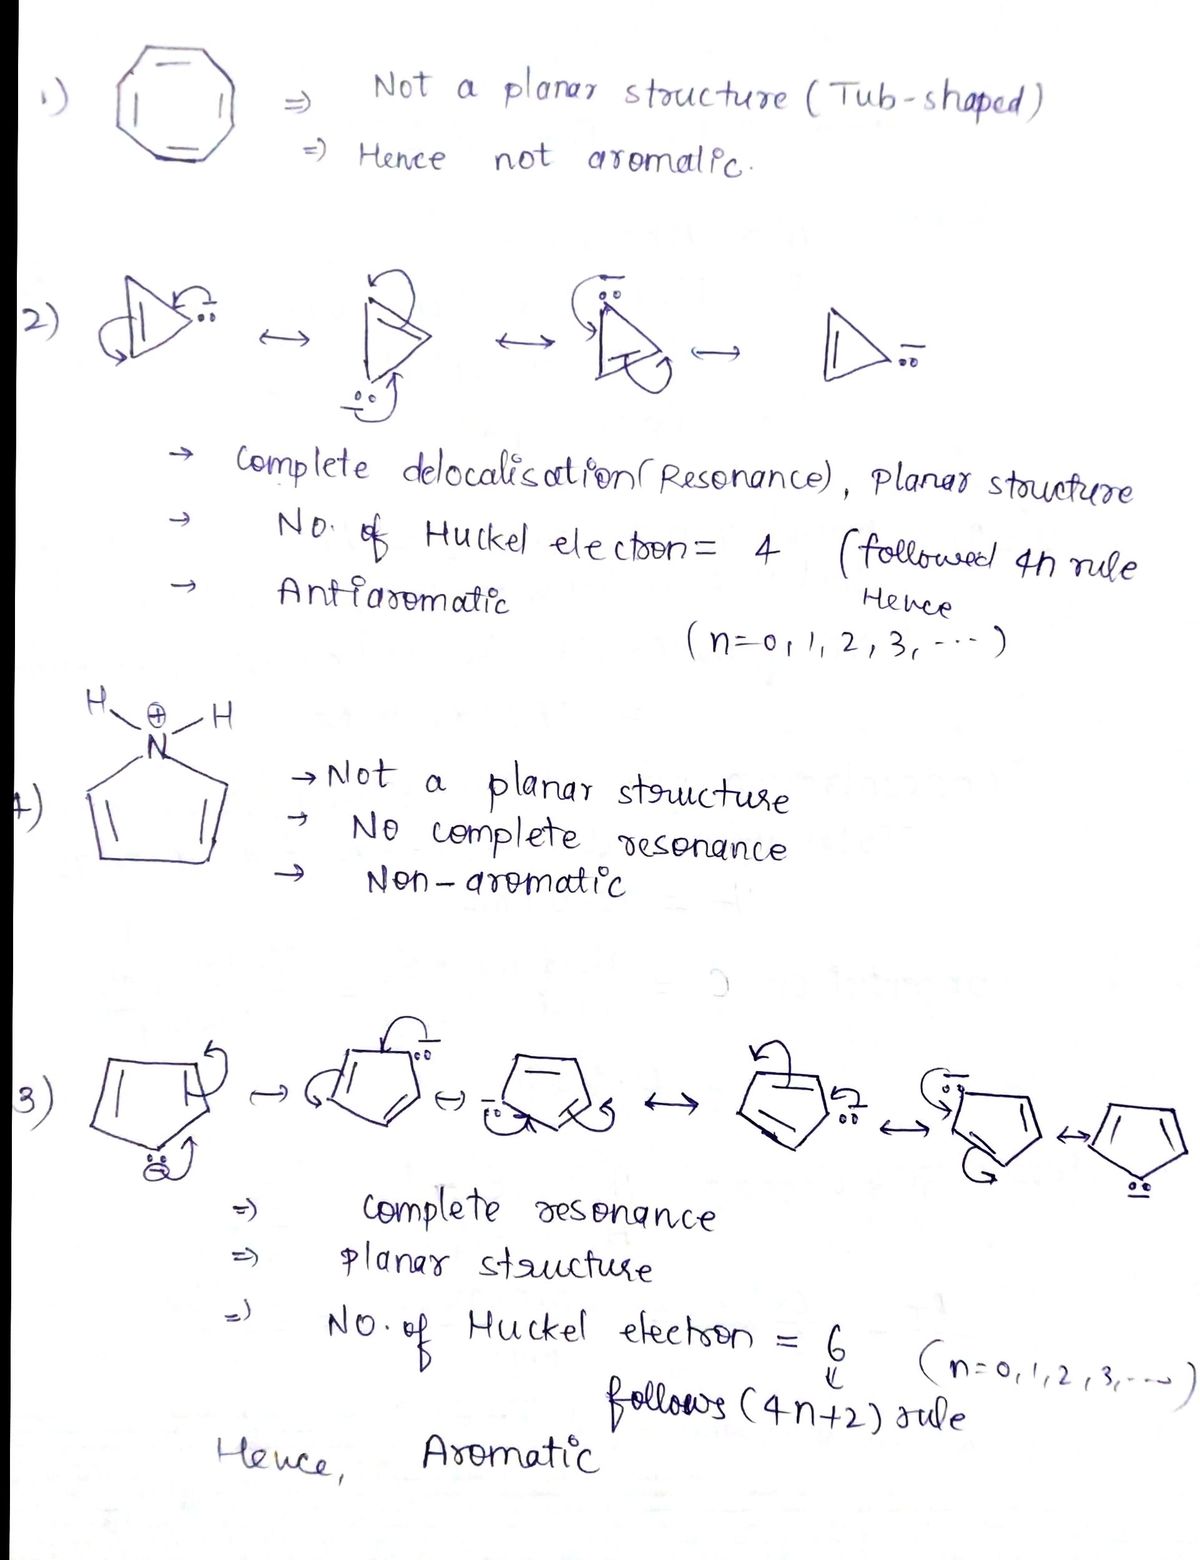 1) ⇒ Not a planar structure (Tub-shaped)
⇒ Hence not aromatic.
2)
→ Complete delocalisation (Resonance), planar structure
→ No. of Huckel electron = 4 (followed 4n rule
Hence
→ Antiaromatic
(n=0, 1, 2, 3, ...)
H ⊕ H
N
4) → Not a planar structure
→ No complete resonance
→ Non-aromatic
3)
⇒ Complete resonance
⇒ planar structure
⇒ No. of Huckel electron = 6 (n=0, 1, 2, 3, ...)
follows (4n+2) rule
Hence, Aromatic